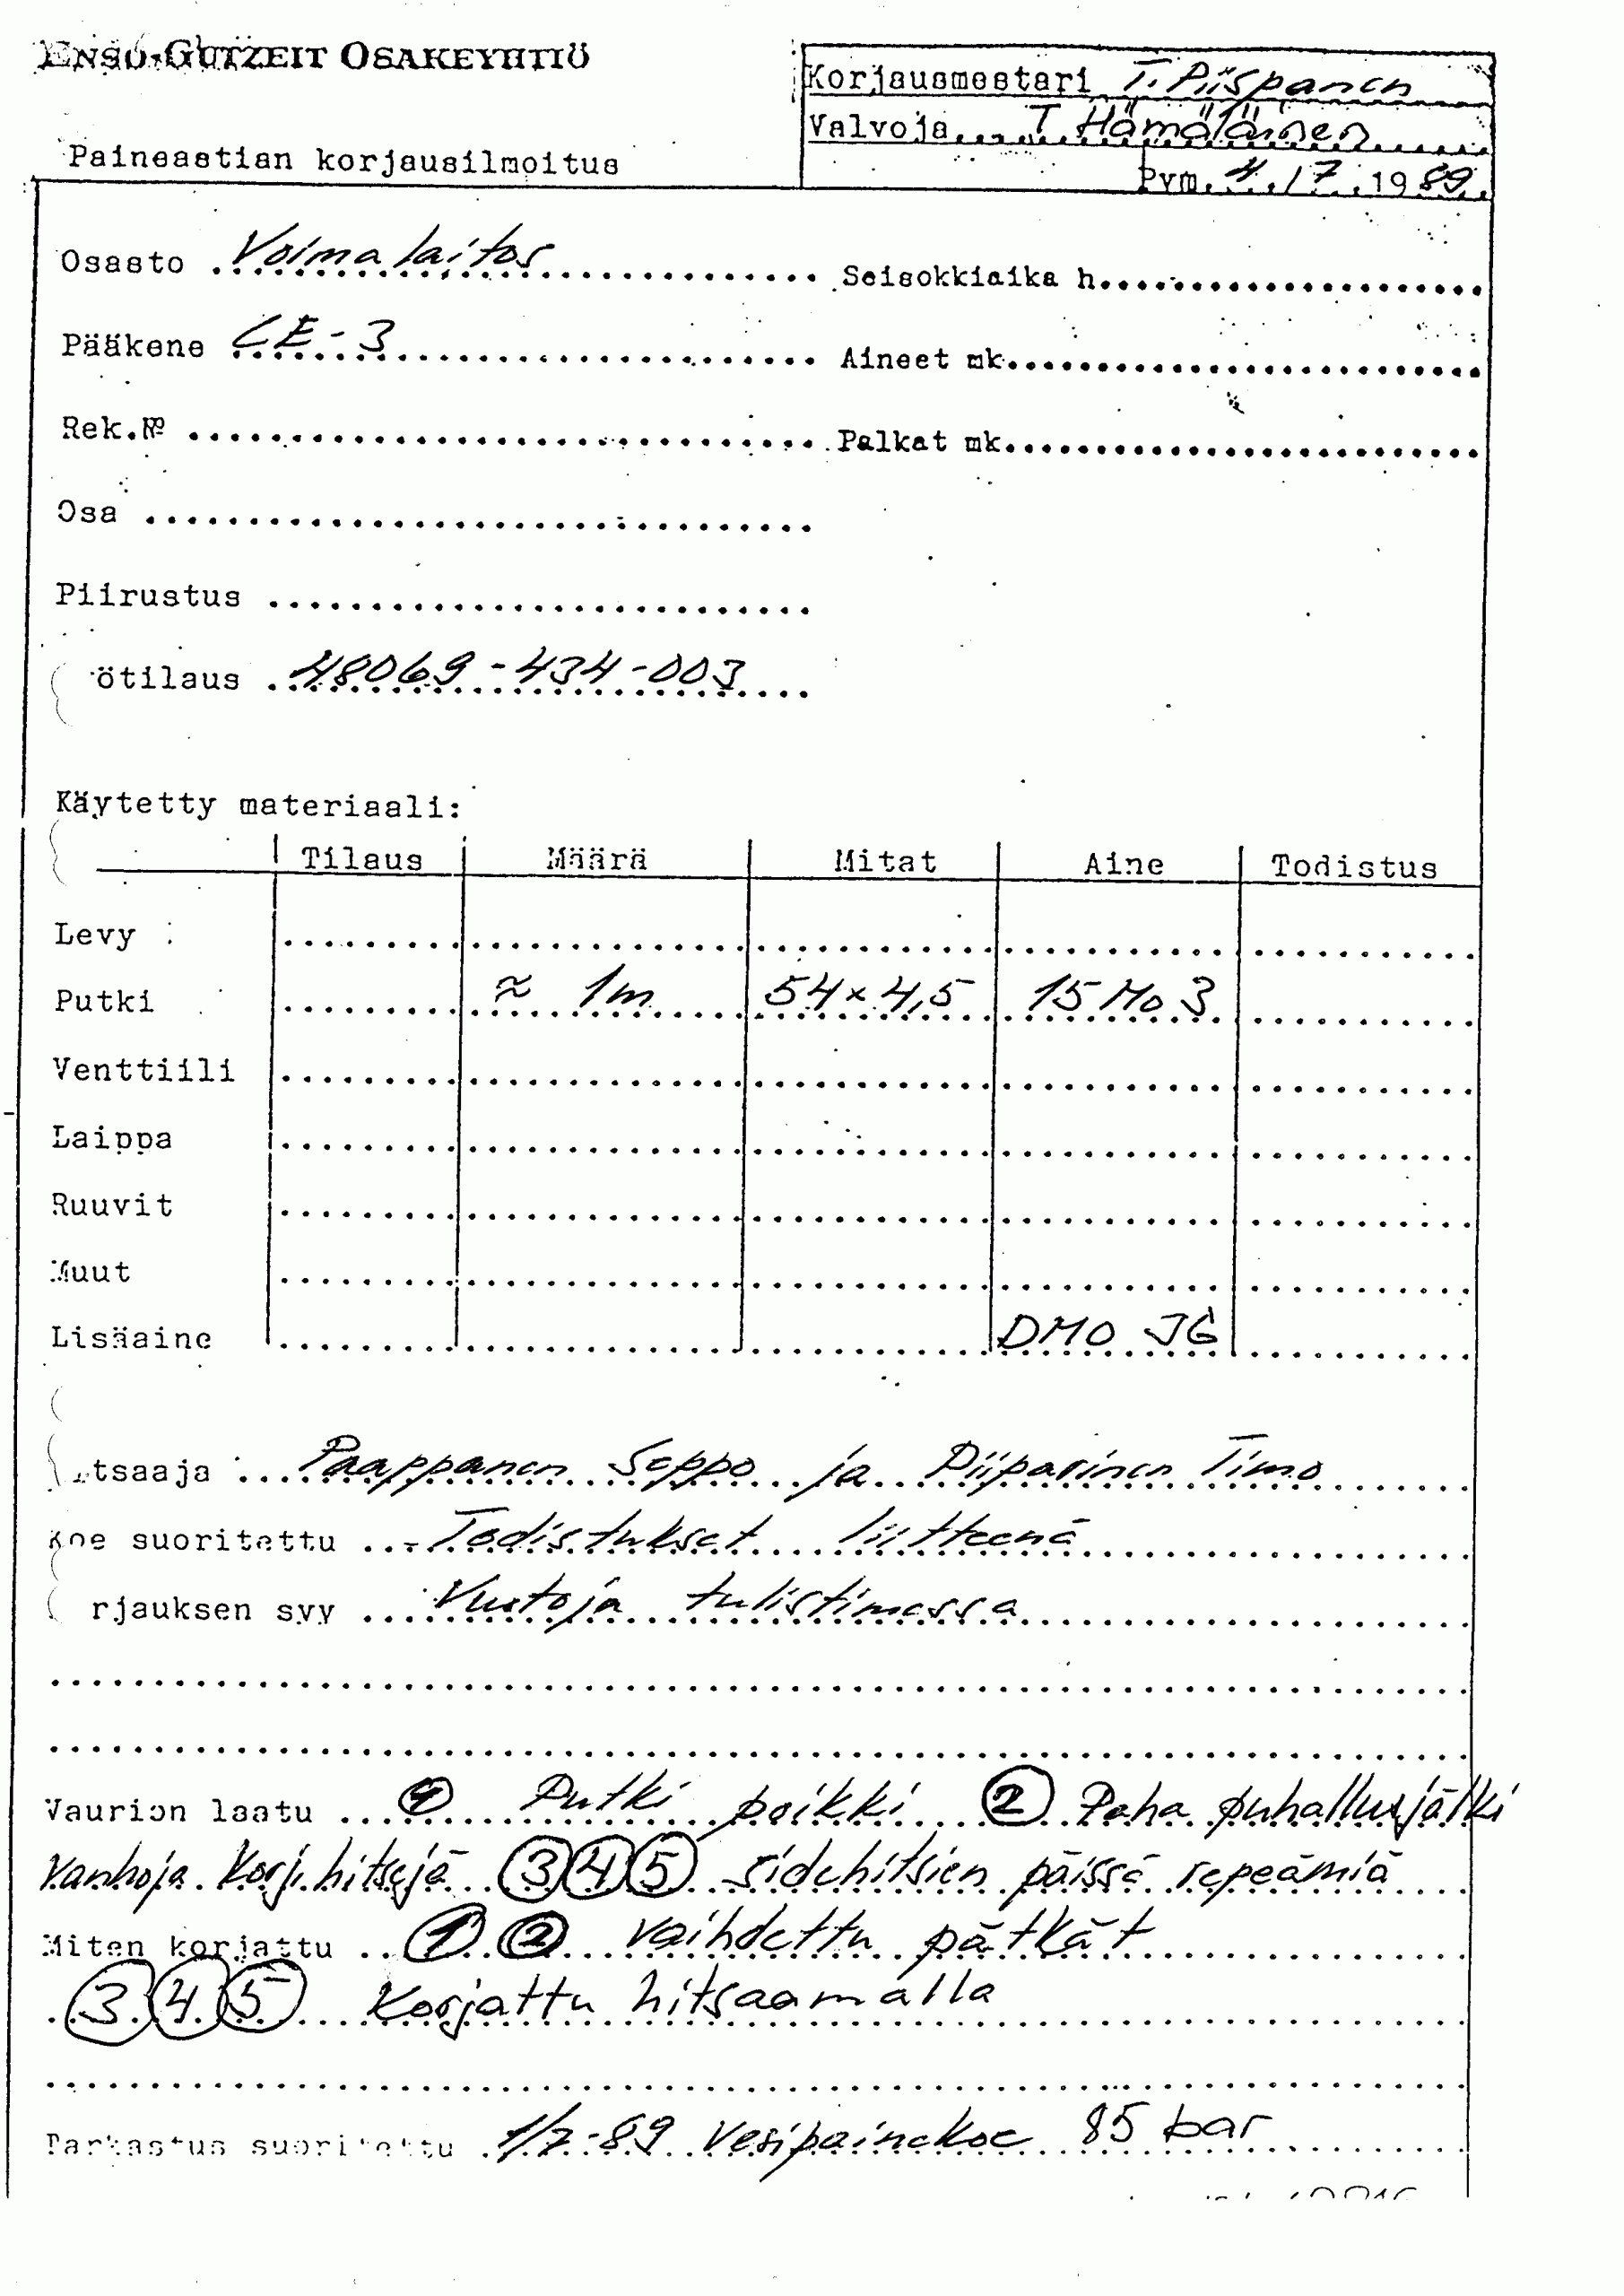 ENSO-GUTZEIT OSAKEYHTIÖ
Korjausmestari T. Piispanen
Valvoja T. Hämäläinen
Paineastian korjausilmoitus
Pvm. 4./7.1989.
Osasto Voimalaitos Seisokkiaika h
Pääkone CE-3 Aineet mk
Rek.№ Palkat mk
Osa
Piirustus
ötilaus 48069-434-003
Käytetty materiaali:
Tilaus Määrä Mitat Aine Todistus
Levy
Putki ≈ 1m 54×4,5 15 Mo 3
Venttiili
Laippa
Ruuvit
Muut
Lisäaine DMO JG
itsaaja Paappanen Seppo ja Piiparinen Timo
Koe suoritettu - Todistukset liitteenä
rjauksen syy Vuotoja tulistimessa
Vaurion laatu ① Putki poikki ② Paha puhallusjälki
Vanhoja korj. hitsejä ③④⑤ sidehitsien päissä repeämiä
Miten korjattu ① ② vaihdettu pätkät
③④⑤ Korjattu hitsaamalla
Tarkastus suoritettu 1/7-89 Vesipainekoe 85 bar